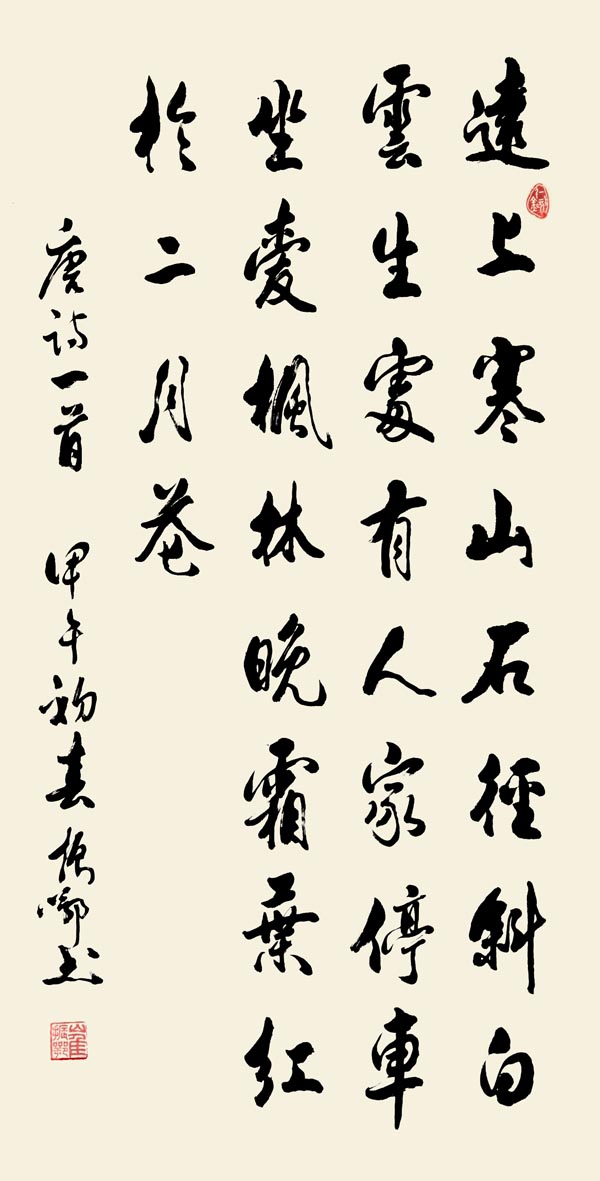 遠上寒山石徑斜白
雲生處有人家停車
坐愛楓林晚霜葉紅
於二月花
唐詩一首 甲午初春 振鄂书
崔振鄂